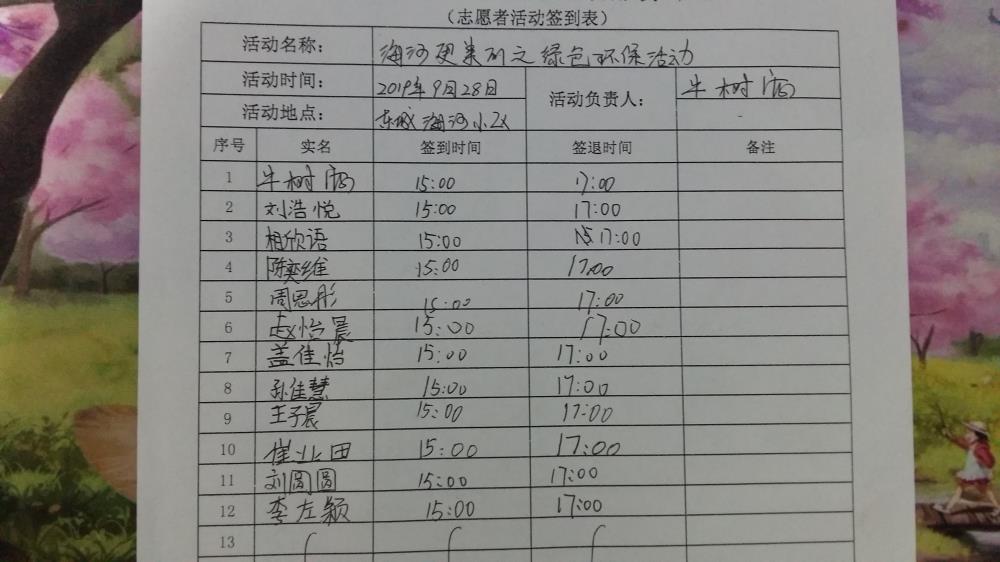 （志愿者活动签到表）
活动名称： 海河更美丽之绿色环保活动
活动时间： 2019年9月28日 活动负责人： 牛树
活动地点： 东城海河小区
序号 实名 签到时间 签退时间 备注
1 牛树 15:00 17:00
2 刘浩悦 15:00 17:00
3 相欣语 15:00 17:00
4 陈奕维 15:00 17:00
5 周思彤 15:00 17:00
6 赵怡晨 15:00 17:00
7 盖佳怡 15:00 17:00
8 孙佳慧 15:00 17:00
9 王子晨 15:00 17:00
10 崔 15:00 17:00
11 刘圆圆 15:00 17:00
12 李左颖 15:00 17:00
13